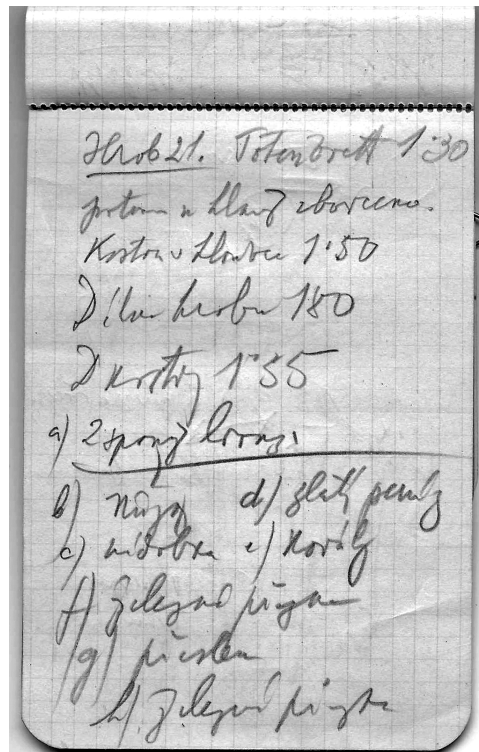 Hrob 21. Totenbrett 1·30
prtom u hlavy zboreno.
Kostra v hloubce 1·50
Délka hrobu 180
D kostry 1·55
a) 2 spony bronz.
b) nůž d) zlatý peníz
c) nádobka e) korály
f) železná přezka
g) přeslen
h) železná přezka